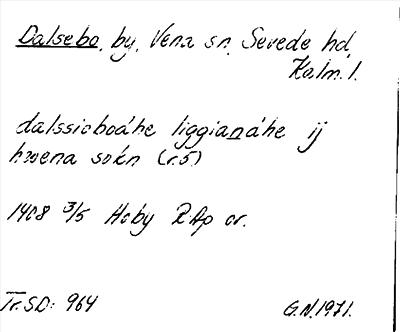 Dalsebo, by, Vena sn, Sevede hd,
Kalm. l.
dalssieboáhe liggianáhe ij
hwena sokn (r.5)
1408 3/5 Hoby RAp or.
Tr. SD: 964
G.N. 1971.